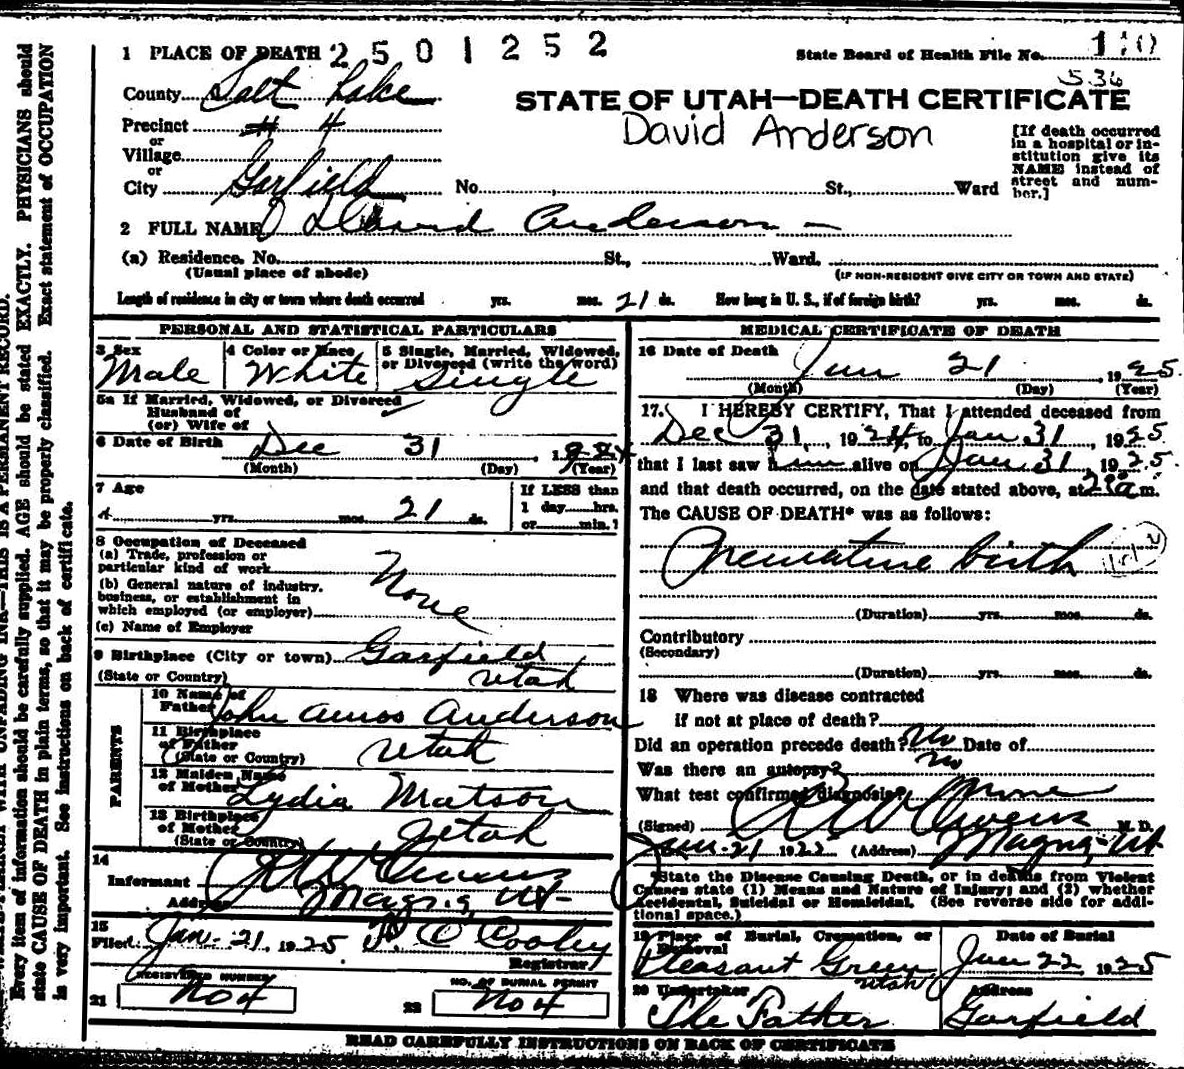 1 PLACE OF DEATH 2501252 State Board of Health File No. 110
536
County Salt Lake
STATE OF UTAH—DEATH CERTIFICATE
Precinct # 4
David Anderson
or
Village
or
City Garfield No. , St., Ward
[If death occurred
in a hospital or in-
stitution give its
NAME instead of
street and num-
ber.]
2 FULL NAME David Anderson —
(a) Residence. No. St., Ward.
(Usual place of abode) (IF NON-RESIDENT GIVE CITY OR TOWN AND STATE)
Length of residence in city or town where death occurred yrs. mos. 21 ds. How long in U. S., if of foreign birth? yrs. mos. ds.
PERSONAL AND STATISTICAL PARTICULARS
3 Sex
Male
4 Color or Race
White
5 Single, Married, Widowed,
or Divorced (write the word)
Single
5a If Married, Widowed, or Divorced
Husband of
(or) Wife of
6 Date of Birth Dec 31
(Month) (Day) (Year)
7 Age
yrs. mos. 21 ds.
If LESS than
1 day hrs.
or min.?
8 Occupation of Deceased
(a) Trade, profession or
particular kind of work
(b) General nature of industry,
business, or establishment in
which employed (or employer)
None
(c) Name of Employer
9 Birthplace (City or town) Garfield
(State or Country) Utah
PARENTS
10 Name of
Father John Amos Anderson
11 Birthplace
of Father
(State or Country) Utah
12 Maiden Name
of Mother Lydia Matson
13 Birthplace
of Mother
(State or Country) Utah
14
Informant Owens
Address Magna, Ut-
15
Filed Jan. 21, 1925 Cooley
Registrar
REGISTERED NUMBER
21 No 4
NO. OF BURIAL PERMIT
22 No 4
MEDICAL CERTIFICATE OF DEATH
16 Date of Death Jan 21 1925.
(Month) (Day) (Year)
17. I HEREBY CERTIFY, That I attended deceased from
Dec 31, 1924, to Jan 31, 1925
that I last saw him alive on Jan 31, 1925.
and that death occurred, on the date stated above, at 2 a m.
The CAUSE OF DEATH* was as follows:
Premature birth
(Duration) yrs. mos. ds.
Contributory
(Secondary)
(Duration) yrs. mos. ds.
18 Where was disease contracted
if not at place of death?
Did an operation precede death? No Date of
Was there an autopsy? no
What test confirmed diagnosis? None
(Signed) Owens M. D.
Jan. 21 1925 (Address) Magna, Ut
*State the Disease Causing Death, or in deaths from Violent
Causes state (1) Means and Nature of Injury; and (2) whether
Accidental, Suicidal or Homicidal. (See reverse side for addi-
tional space.)
19 Place of Burial, Cremation, or
Removal
Pleasant Green
Utah
Date of Burial
Jan 22, 1925
20 Undertaker
The Father
Address
Garfield
READ CAREFULLY INSTRUCTIONS ON BACK OF CERTIFICATE
Every item of information should be carefully supplied. AGE should be stated EXACTLY. PHYSICIANS should
state CAUSE OF DEATH in plain terms, so that it may be properly classified. Exact statement of OCCUPATION
is very important. See instructions on back of certificate.